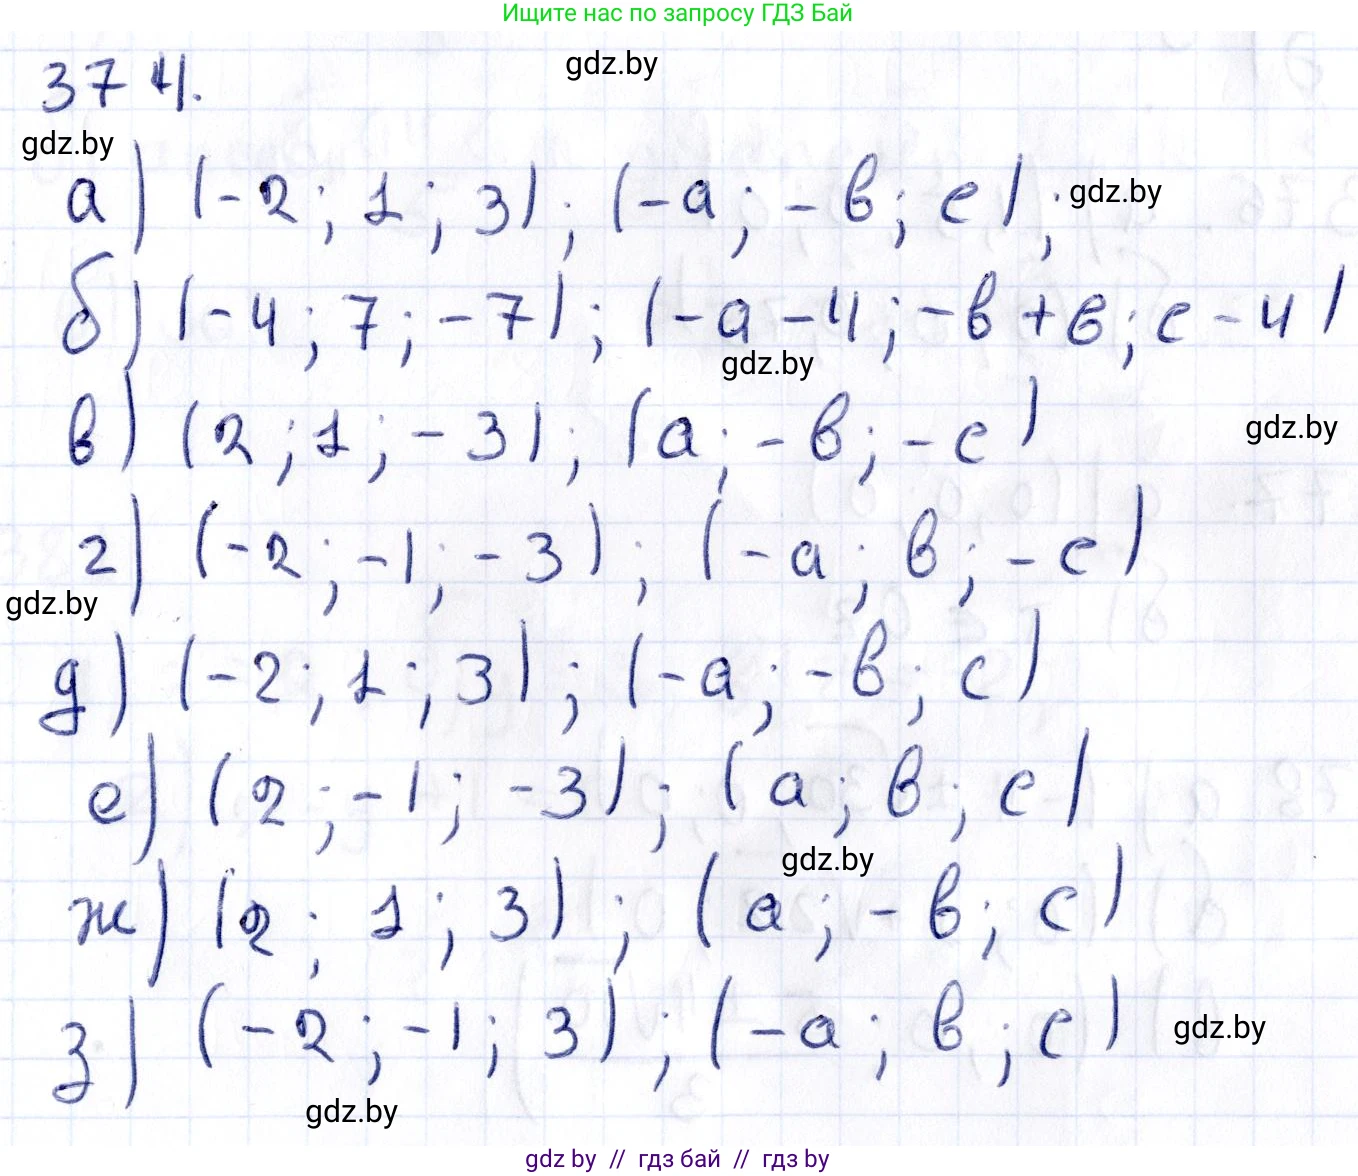 Ищите нас по запросу ГДЗ Бай
374.
gdz.by
gdz.by
а) (-2; 1; 3); (-а; -в; с);
gdz.by
б) (-4; 7; -7); (-а-4; -в+6; с-4)
gdz.by
в) (2; 1; -3); (а; -в; -с)
gdz.by
г) (-2; -1; -3); (-а; в; -с)
gdz.by
д) (-2; 1; 3); (-а; -в; с)
е) (2; -1; -3); (а; в; с)
gdz.by
ж) (2; 1; 3); (а; -в; с)
з) (-2; -1; 3); (-а; в; с)
gdz.by
gdz.by
gdz by // гдз бай // гдз by